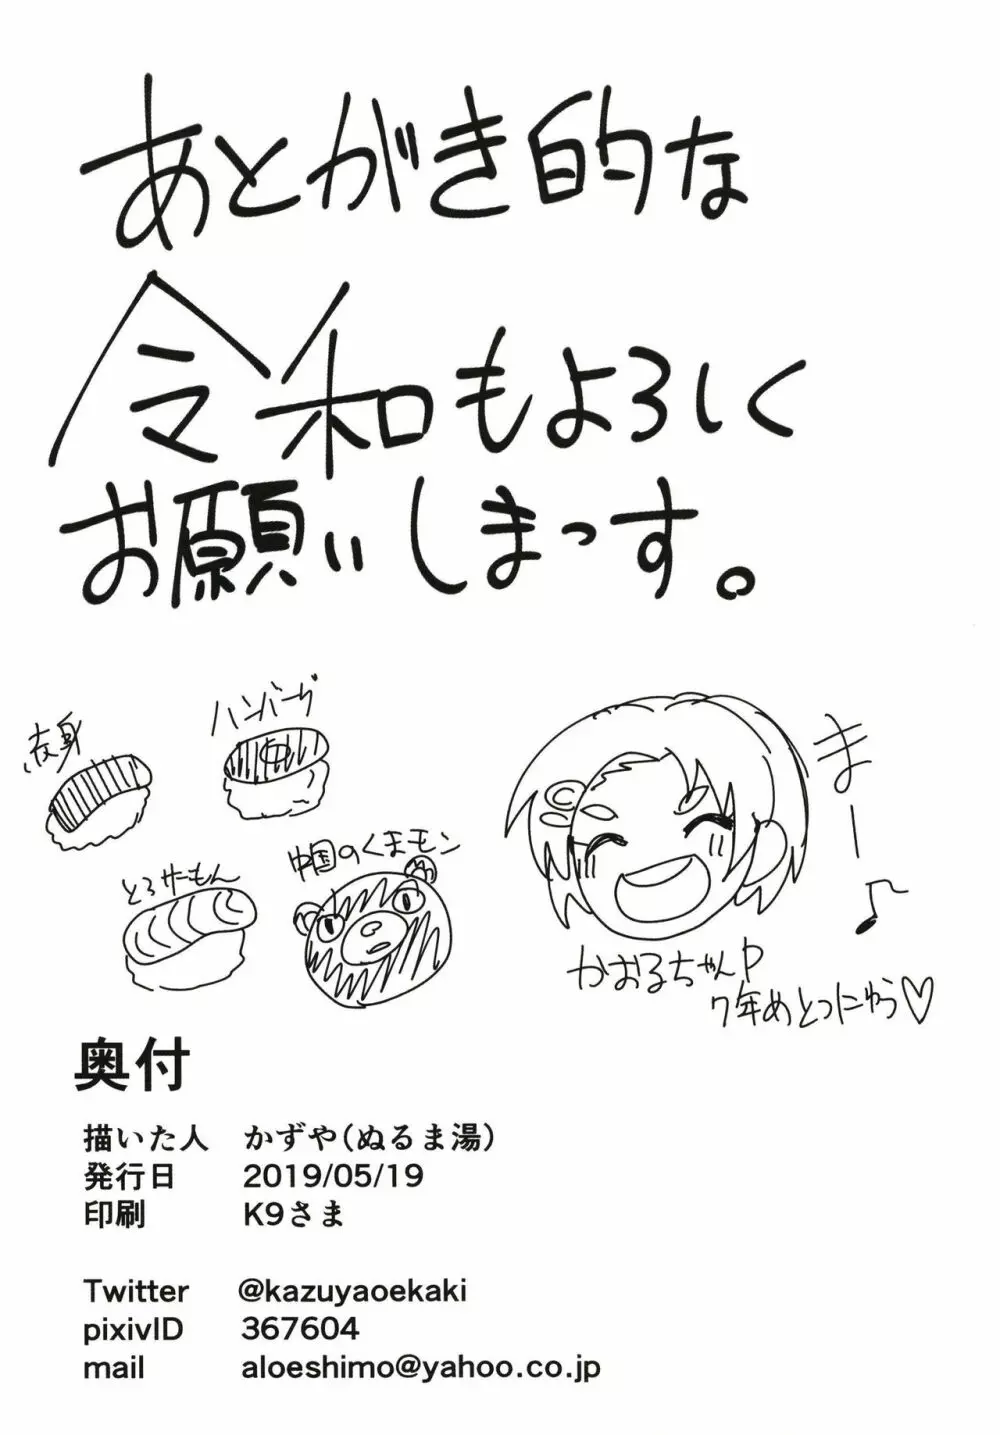 あとがき的な
令和もよろしく
お願いしまっす。
ハンバーグ
炙身
まー
中国のくまモン
とろサーもん
かおるちゃんP
7年めとつにゅう♡
奥付
描いた人 かずや(ぬるま湯)
発行日 2019/05/19
印刷 K9さま
Twitter @kazuyaoekaki
pixivID 367604
mail aloeshimo@yahoo.co.jp